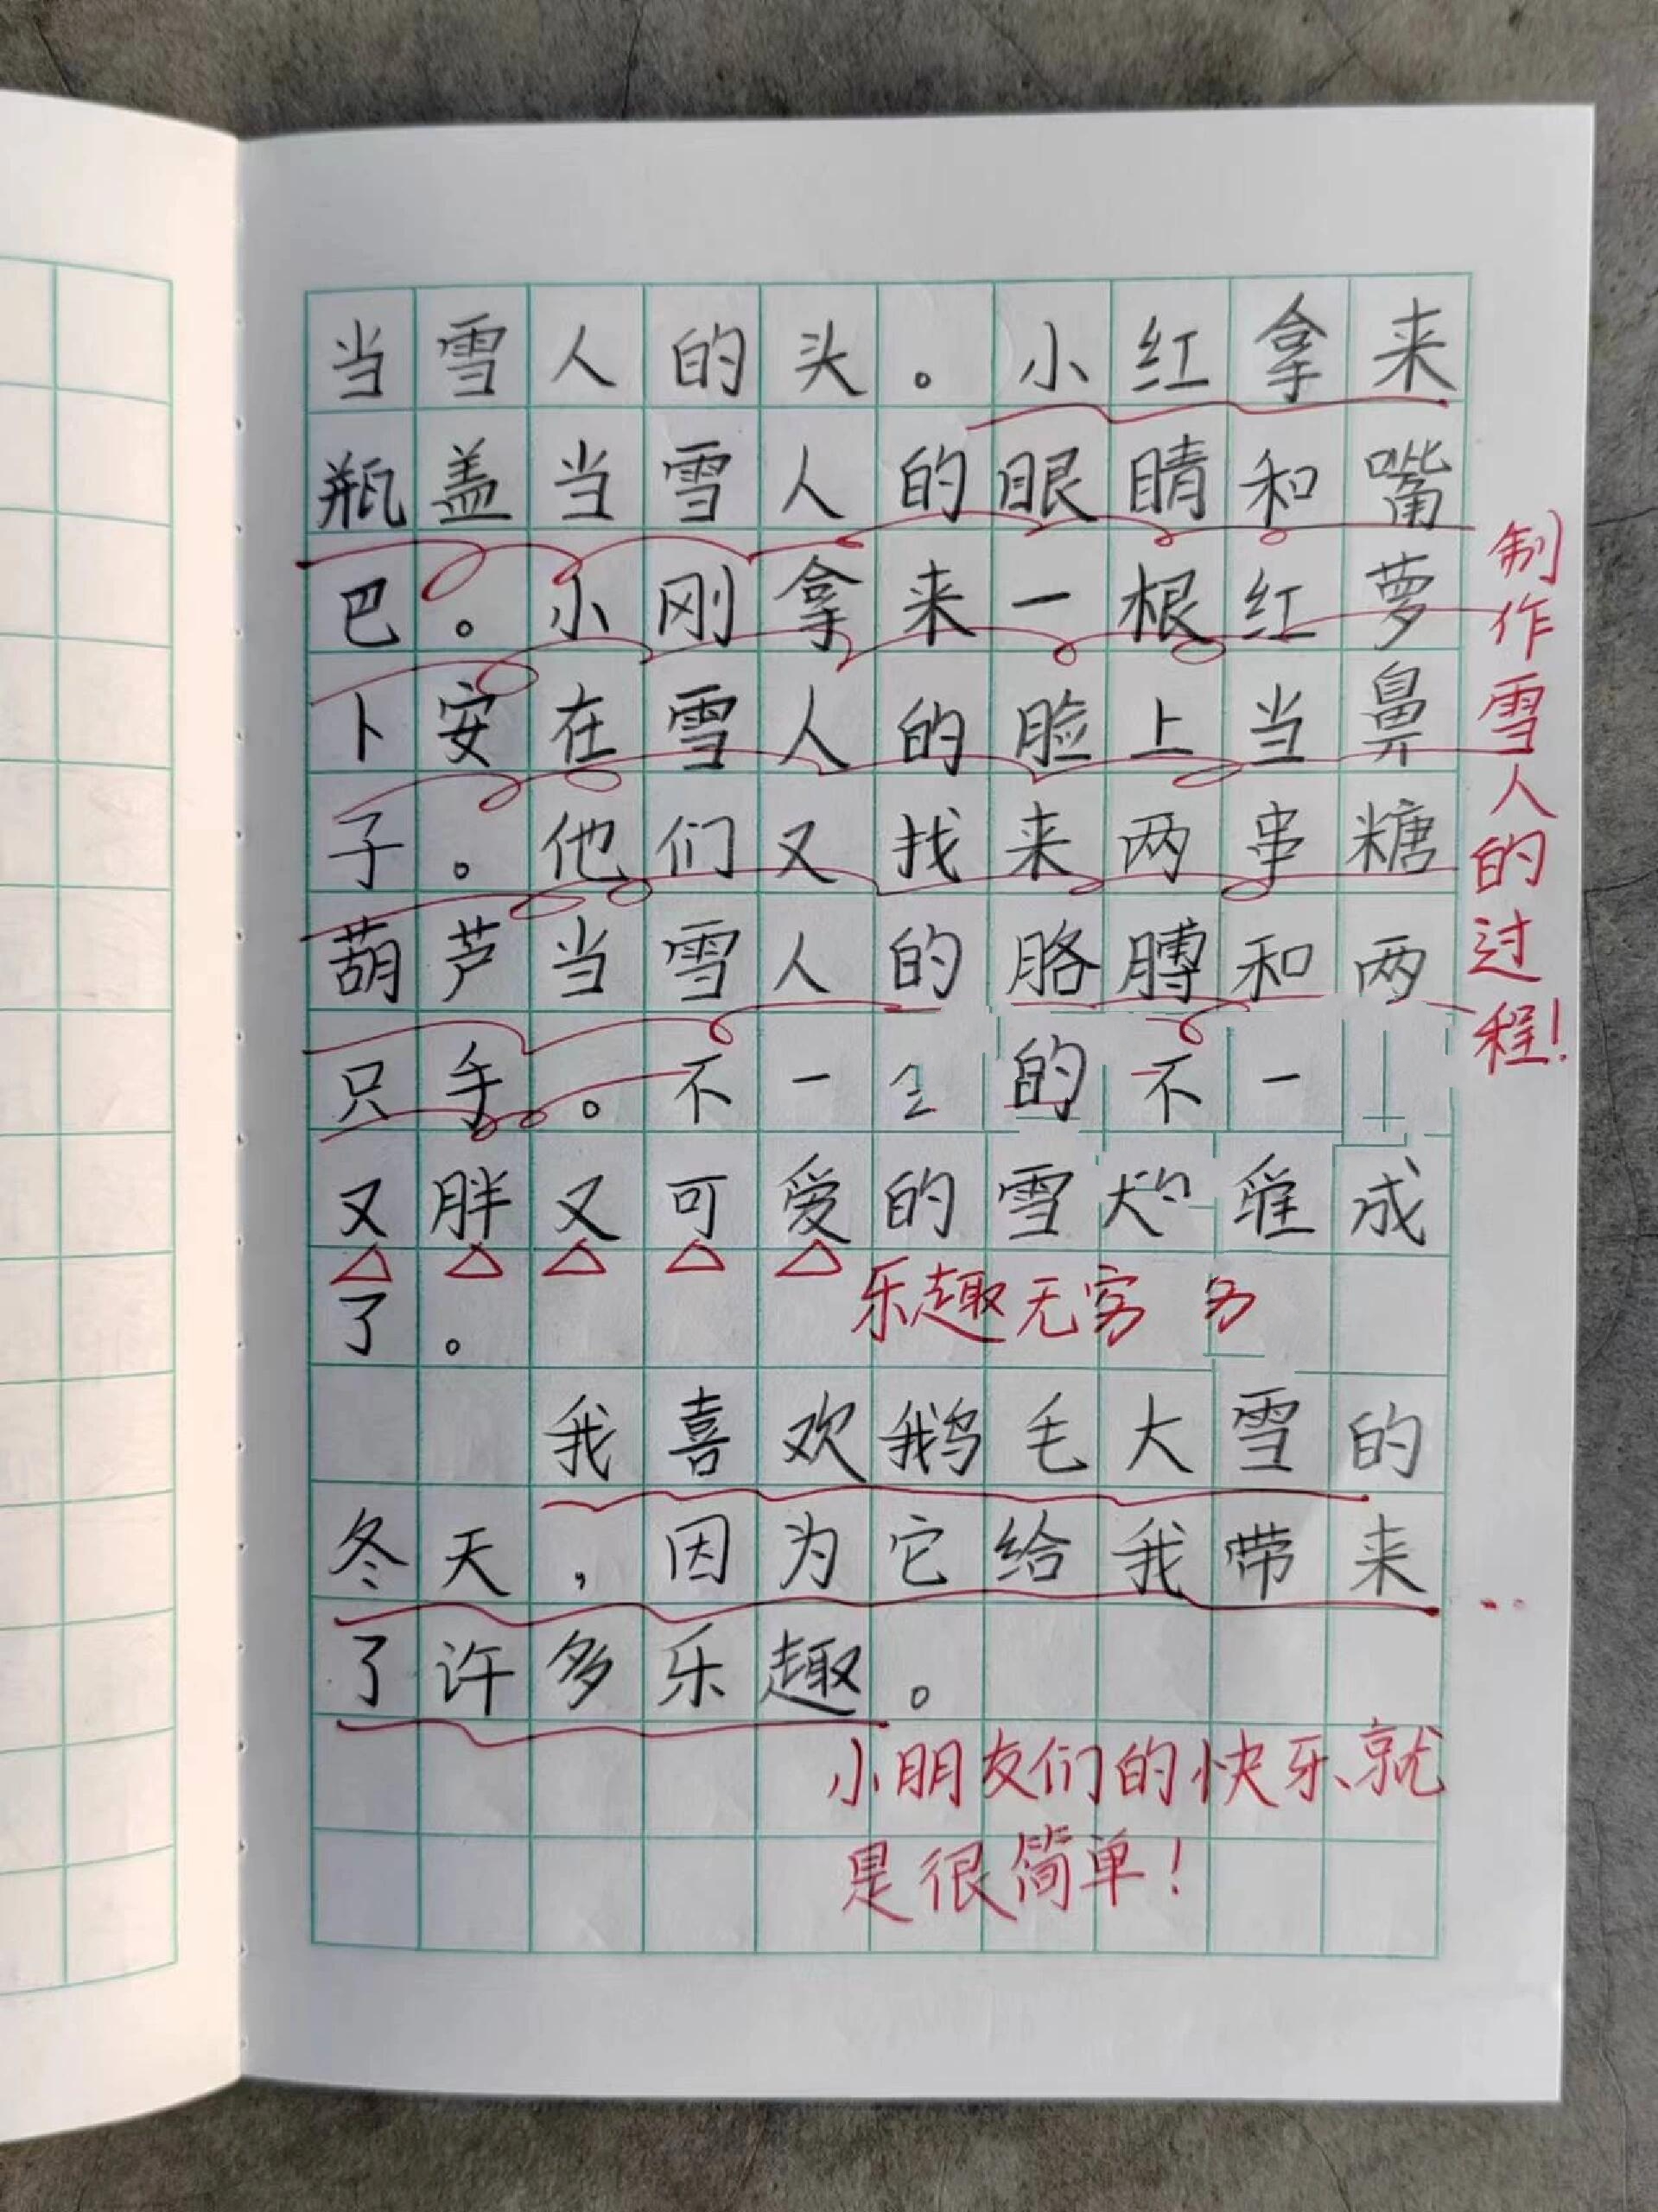 当雪人的头。小红拿来
瓶盖当雪人的眼睛和嘴
巴。小刚拿来一根红萝
卜安在雪人的脸上当鼻
子。他们又找来两串糖
葫芦当雪人的胳膊和两
只手。不一 的不一
又胖又可爱的雪 成
了。
乐趣无穷
我喜欢鹅毛大雪的
冬天,因为它给我带来
了许多乐趣。
小朋友们的快乐就
是很简单!
制作雪人的过程!